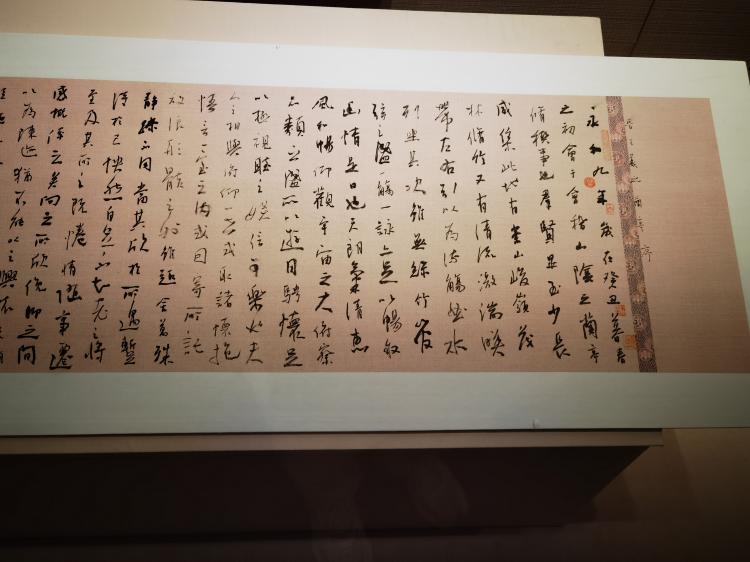 永和九年歲在癸丑暮春
之初會于會稽山陰之蘭亭
脩禊事也羣賢畢至少長
咸集此地有崇山峻嶺茂
林脩竹又有清流激湍暎
帶左右引以為流觴曲水
列坐其次雖無絲竹管
弦之盛一觴一詠亦足以暢敘
幽情是日也天朗氣清惠
風和暢仰觀宇宙之大俯察
品類之盛所以遊目騁懷足
以極視聽之娛信可樂也夫
人之相與俯仰一世或取諸懷抱
悟言一室之內或因寄所託
放浪形骸之外雖趣舍萬殊
靜躁不同當其欣於所遇暫
得於己快然自足不知老之將
至及其所之既惓情隨事遷
感慨係之矣向之所欣俛仰之間
以為陳迹猶不能不以之興懷